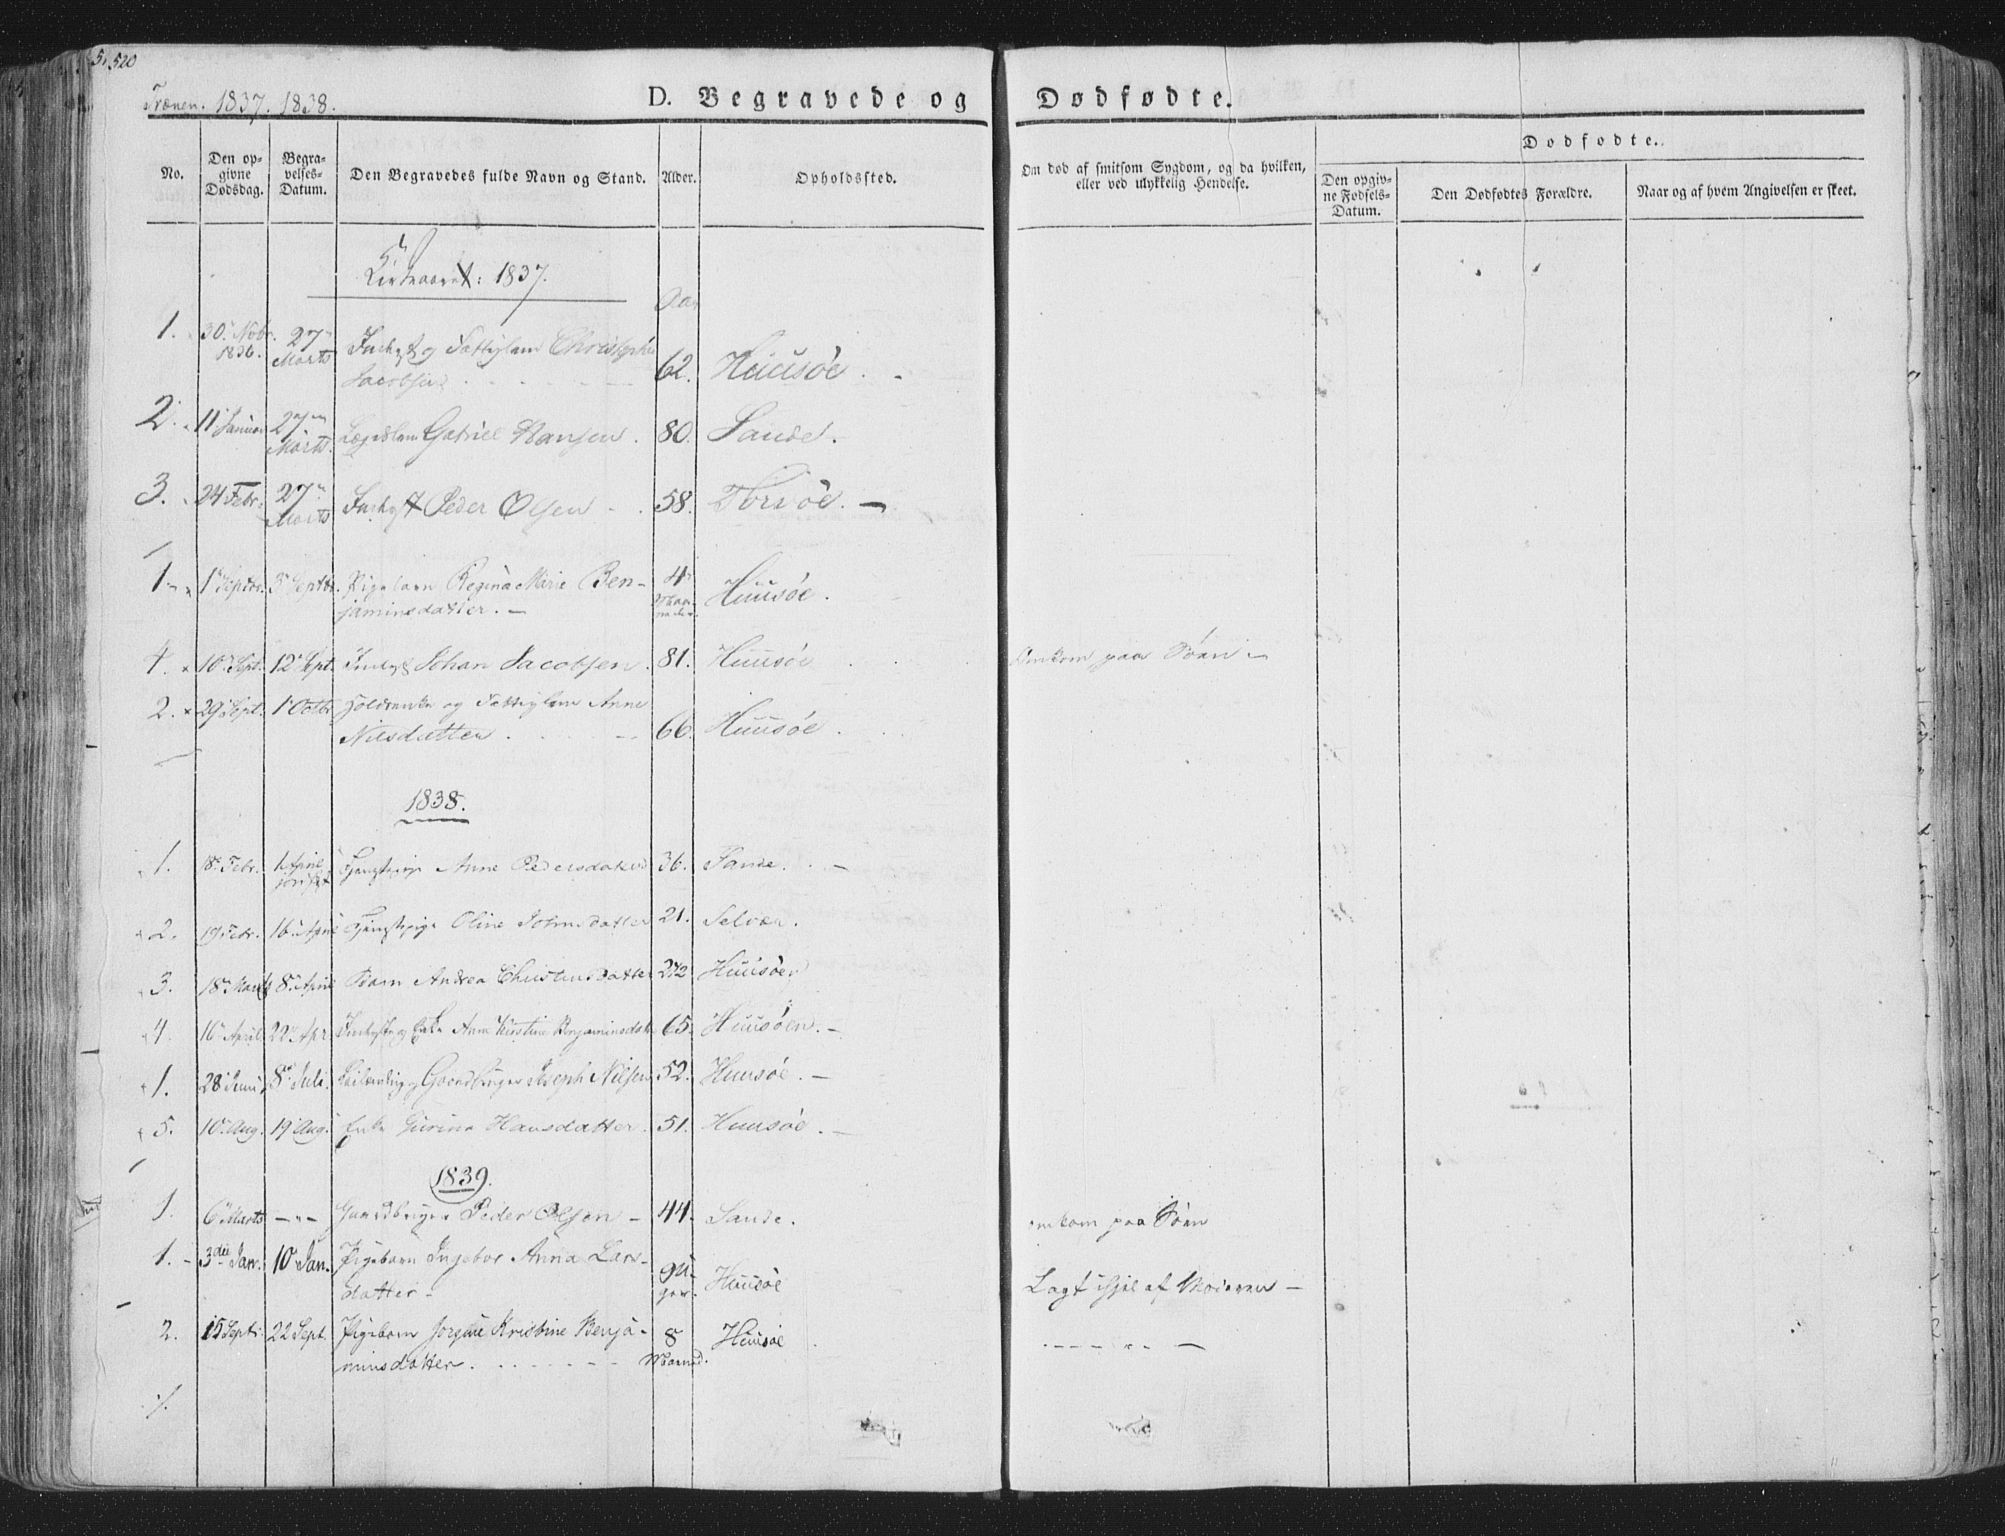 520
Trænen. 1837. 1838.
D. Begravede og Dødfødte.
No. Den opgivne Dødsdag. Begravelses-Datum. Den Begravedes fulde Navn og Stand. Alder. Opholdssted. Om død af smitsom Sygdom, og da hvilken, eller ved ulykkelig Hendelse.
Dødfødte.
Den opgivne Fødsels-Datum. Den Dødfødtes Forældre. Naar og af hvem Angivelsen er skeet.
Kirkeaaret: 1837.
Aar
1. 30. Novbr. 1836. 27 Marts Inderst og Fattiglem
Jacobsen 62. Huusøe.
2. 11 Januar 27 Marts Lægdslem Gabriel Hansen. 80. Sande.
3. 24 Febr. 27 Marts Inderst Peder Olsen 58. Torvøe. —
1. 1 Septbr. 3 Septbr. Pigebarn Regina Marie Ben-
jaminsdatter. — 4 Maaneder Huusøe.
4. 10 Sept. 12 Sept. Inderst Johan Jacobsen. 81. Huusøe Omkom paa Søen —
2. 29 Sept. 1 Octbr og Fattiglem Anne
Nilsdatter 66. Huusøe.
1838.
1. 18 Febr. 1 April Anne Pedersdatter 36. Sande. —
2. 19 Febr. 16 April Oline Johnsdatter 21. Selvær.
3. 18 Marts 8 April Barn Andrea Christensdatter 2 1/2 Huusøen
4. 16 April 22 Apr. Enke Anne Kirstine Benjaminsdatt 65. Huusøen. —
1. 28 Juni 8 Juli. Gaardbruger Joseph Nilsen 52. Huusøe. —
5. 10 Aug. 19 Aug. Enke Hansdatter. 51. Huusøe. —
1839.
1. 6 Marts — " — Gaardbruger Peder Olsen — 44. Sande. omkom paa Søen
1. - 3die Jan. 10 Jan. Pigebarn Ingebor Anna Lars-
datter - Huusøe Lagt ihjel af Moderen —
2. 15 Sept: 22 Sept. Pigebarn Jørgine Kristine Benja-
minsdatter. 8 Maaned. Huusøe